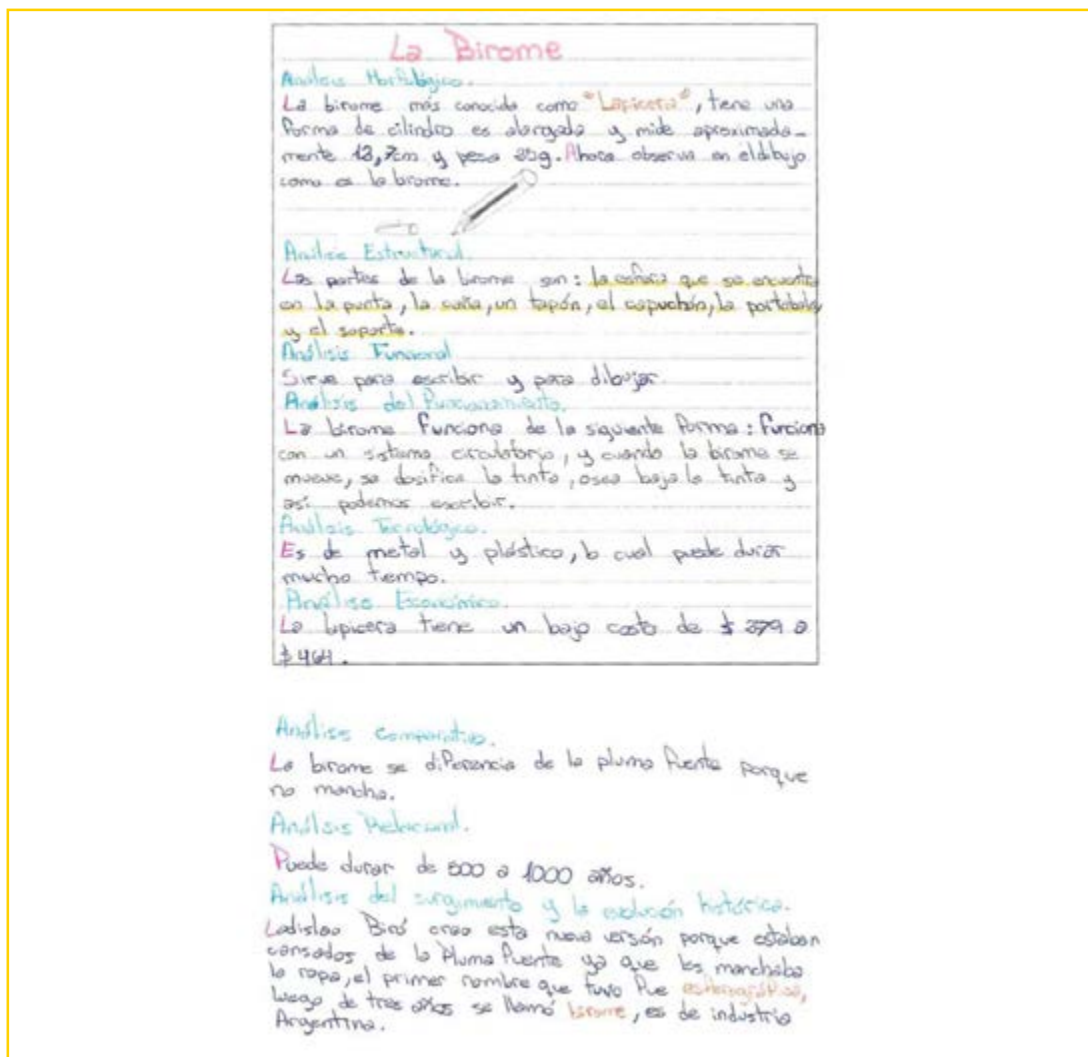 La Birome
Análisis Morfológico.
La birome más conocida como "Lapicera", tiene una
forma de cilindro es alargada y mide aproximada-
mente 13,7cm y pesa g. Ahora observa en el dibujo
como es la birome.
Análisis Estructural.
Las partes de la birome son: la esfera que se encuentra
en la punta, la , un tapón, el capuchón, la portabolas
y el soporte.
Análisis Funcional
Sirve para escribir y para dibujar.
Análisis del Funcionamiento.
La birome funciona de la siguiente forma: funciona
con un sistema circulatorio, y cuando la birome se
mueve, se dosifica la tinta, osea baja la tinta y
así podemos escribir.
Análisis Tecnológico.
Es de metal y plástico, lo cual puede durar
mucho tiempo.
Análisis Económico.
La lapicera tiene un bajo costo de $ 379 a
$ 464.
Análisis Comparativo.
La birome se diferencia de la pluma fuente porque
no mancha.
Análisis Relacional.
Puede durar de 500 a 1000 años.
Análisis del surgimiento y la evolución histórica.
Ladislao Biró creo esta nueva versión porque estaban
cansados de la Pluma fuente ya que les manchaba
la ropa, el primer nombre que tuvo fue
luego de tres años se llamó birome, es de industria
Argentina.